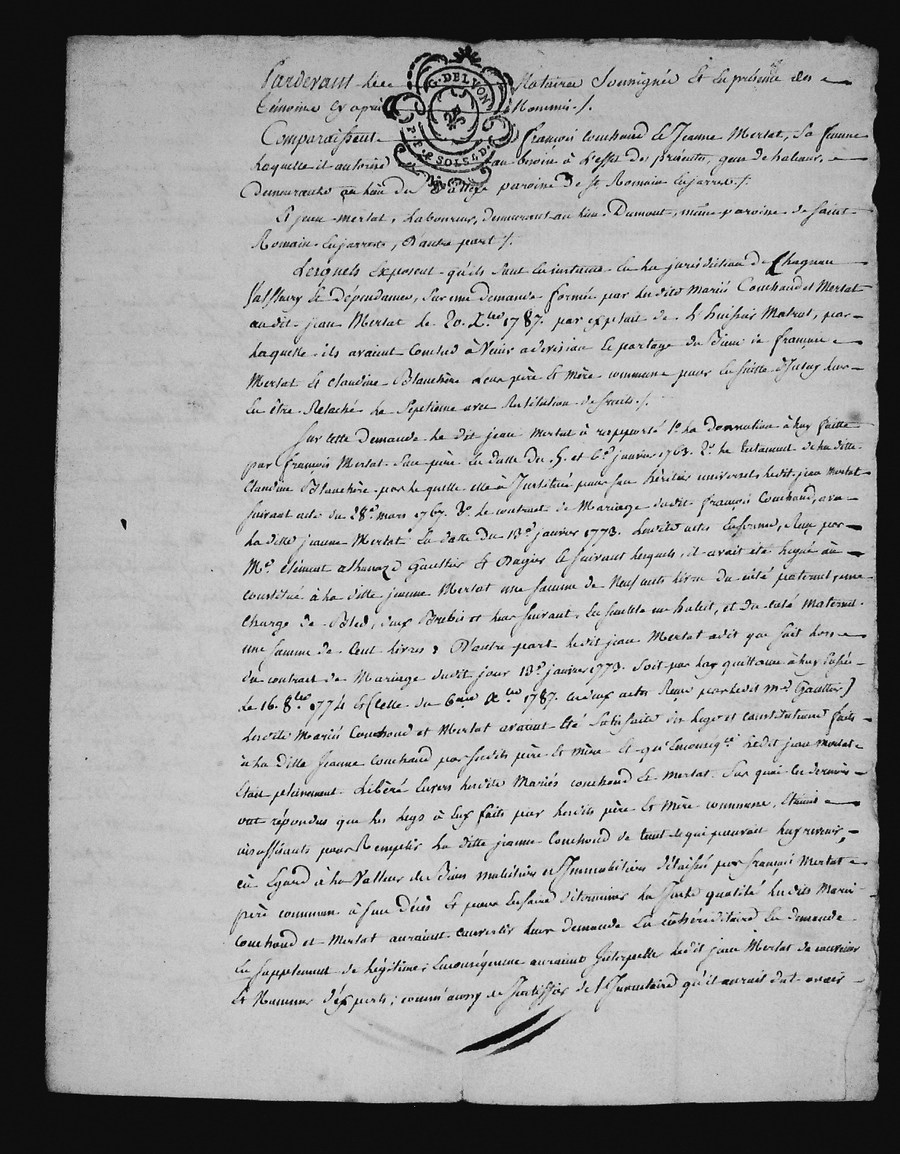 Pardevant Les Notaires Soussignés Et En présence des
témoins cy après Nommés /.
G. DE LYON
P. P. 2 SOLS 4 D.
Comparaissent françois Couchoud Et Jeanne Mertat, Sa femme
Laquelle il autorise au besoin à L'effet des présentes, gens de
Demeurants au lieu du paroisse De St Romain En jarrest /.
Et jean Mertat, Laboureur, demeurant au lieu Dumont, même paroisse de Saint
Romain En jarrest, D'autre part /.
Lesquels Exposent qu'ils sont En instance En La jurisdiction de Chagnon
St Maury Et Dépendances, Sur une demande formée par Lesdits Mariés Couchoud et Mertat
audit jean Mertat Le 20. 1787. par exploit de L'huissier par
Laquelle ils avaient Conclud à Venir à division Et partage des Biens de françois
Mertat Et Claudine Blanchère Leurs père Et Mère communs pour En suitte d'Iceux Leur
En être Relaché La Septieme avec Restitution de fruits /.
Sur Cette Demande Le dit jean Mertat à rapporté 1º La Donnation à Luy faitte
par françois Mertat Son père En datte du 5. et 6e janvier 1763. 2º Le testament de La ditte
Claudine Blanchère par Le quelle elle à Institué pour Son héritier universel Ledit jean Mertat
Suivant acte du 28e mars 1767. 3º Le contract de Mariage dudit françois Couchoud, avec
La ditte jeanne Mertat En datte du 13e janvier 1773. Lesdits actes En forme, Reçus par
Me Clément Gaultier Et Dagier Et Suivant Lesquels, il avait été Légué ou
constitué à La ditte jeanne Mertat une Somme de Neuf cents Livres du côté paternel, une
Charge de Bled, deux Brebis et Leur Suivant, En Sus, et du côté Maternel
une Somme de Cent Livres, D'autre part Ledit jean Mertat a dit que Soit Lors
du contract de Mariage dudit jour 13e janvier 1773. Soit par Les quittances à Luy passées
Le 16. 8bre 1774 Et Celle du 6eme Xbre 1787. (Ces deux actes Reçus par Ledit me Gaultier)
Lesdits Mariés Couchoud et Mertat avaient Eté Satisfaits des Legs et constitutions faits
à La Ditte Jeanne Couchoud par Sesdits père Et Mère Et qu'En conséqce Ledit jean Mertat
Etait pleinement Libéré Envers Lesdits Mariés couchoud Et Mertat. Sur quoi Les derniers
ont répondus que Les Legs à Eux faits par Lesdits père Et Mère communs, Etaient
insuffisants pour Remplir La ditte jeanne Couchoud de tout Ce qui pouvait Luy revenir,
Eu Egard à La Valleur des Biens mobiliers et Immobiliers délaissés par françois Mertat
père commun à Son Décès Et pour En faire déterminer La Juste qualité Lesdits Mariés
Couchoud et Mertat auraient convertis Leur demande En cohéreditaire En demande
En Supplement de Légitime; En conséquence auraient Interpellé Ledit jean Mertat de convenir
Et Nommer d'experts; comm'aussy de Justiffier de L'Inventaire qu'il aurait dut avoir